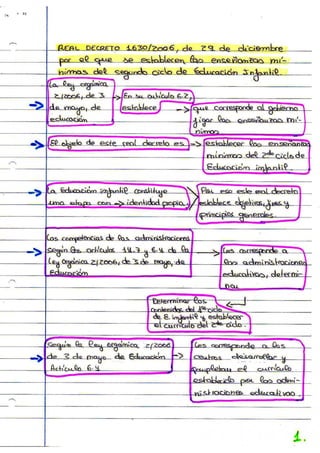 REAL DECRETO 1630/2006, de 29 de diciembre
por el que se establecen las enseñanzas mí-
nimas del segundo ciclo de Educación Infantil.
La Ley orgánica
2/2006, de 3
de mayo, de
educación
En su artículo 6.2
establece
que corresponde al gobierno
fijar las enseñanzas mí-
nimas
El objeto de este real decreto es
establecer las enseñanzas
mínimas del 2º ciclo de
Educación infantil.
La Educación infantil constituye
una etapa con identidad propia
Por eso este real decreto
establece objetivos, fines y
principios generales.
Las competencias de las administraciones
según los artículos 14.7 y 6.4 de la
Ley orgánica 2/2006, de 3 de mayo, de
Educación
Les corresponde a
las administraciones
educativas, determi-
nar
Determinar los
contenidos del 1º ciclo
de E. infantil y establecer
el currículo del 2º ciclo.
Según la Ley orgánica 2/2006
de 3 de mayo de Educación
Artículo 6.4
Les corresponde a los
centros desarrollar y
completar el currículo
establecido por las admi-
nistraciones educativas.
1.